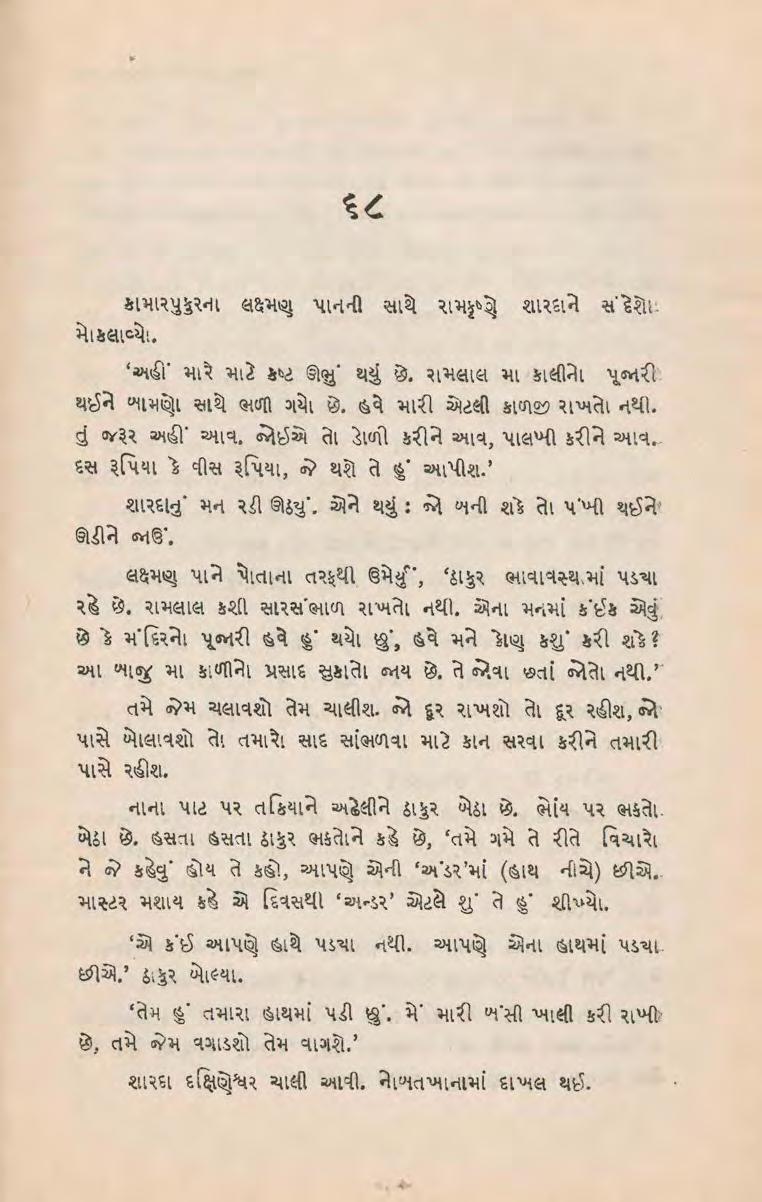 ૬૮
કામારપુકુરના લક્ષ્મણ પાનની સાથે રામકૃષ્ણે શારદાને સંદેશો
મોકલાવ્યો.
‘અહીં મારે માટે કષ્ટ ઊભું થયું છે. રામલાલ મા કાલીનો પૂજારી
થઈને બામણો સાથે ભળી ગયો છે. હવે મારી એટલી કાળજી રાખતો નથી.
તું જરૂર અહીં આવ. જોઈએ તો ડોળી કરીને આવ, પાલખી કરીને આવ.
દસ રૂપિયા કે વીસ રૂપિયા, જે થશે તે હું આપીશ.’
શારદાનું મન રડી ઊઠયું. એને થયું : જો બની શકે તો પંખી થઈને
ઊડીને જાઉં.
લક્ષ્મણ પાને પોતાના તરફથી ઉમેર્યું, ‘ઠાકુર ભાવાવસ્થામાં પડયા
રહે છે. રામલાલ કશી સારસંભાળ રાખતો નથી. એના મનમાં કંઈક એવું
છે કે મંદિરનો પૂજારી હવે હું થયો છું, હવે મને કોણ કશું કરી શકે?
આ બાજુ મા કાળીનો પ્રસાદ સુકાતો જાય છે. તે જોવા છતાં જોતો નથી.’
તમે જેમ ચલાવશો તેમ ચાલીશ. જો દૂર રાખશો તો દૂર રહીશ, જો
પાસે બોલાવશો તો તમારો સાદ સાંભળવા માટે કાન સરવા કરીને તમારી
પાસે રહીશ.
નાના પાટ પર તકિયાને અઢેલીને ઠાકુર બેઠા છે. ભોંય પર ભકતો
બેઠા છે. હસતા હસતા ઠાકુર ભકતોને કહે છે, ‘તમે ગમે તે રીતે વિચારો
ને જે કહેવું હોય તે કહો, આપણે એની ‘અંડર’માં (હાથ નીચે) છીએ.
માસ્ટર મશાય કહે એ દિવસથી ‘અન્ડર’ એટલે શું તે હું શીખ્યો.
‘એ કંઈ આપણે હાથે પડયા નથી. આપણે એના હાથમાં પડયા
છીએ.’ ઠાકુર બોલ્યા.
‘તેમ હું તમારા હાથમાં પડી છું. મેં મારી બંસી ખાલી કરી રાખી
છે, તમે જેમ વગાડશો તેમ વાગશે.’
શારદા દક્ષિણેશ્વર ચાલી આવી. નોબતખાનામાં દાખલ થઈ.